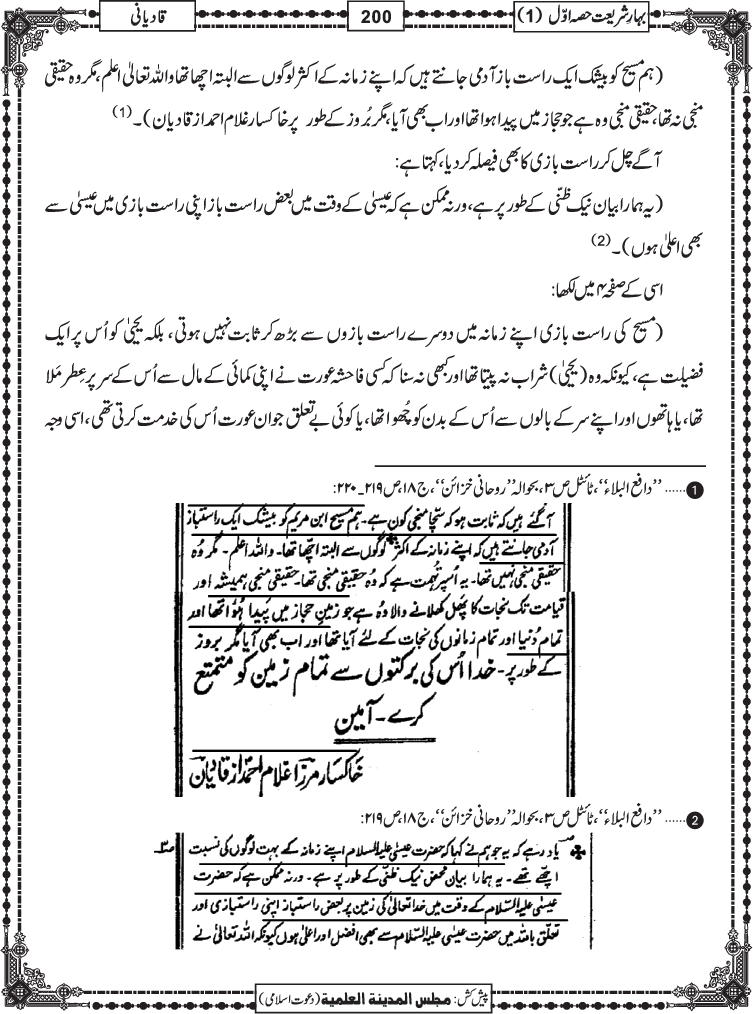 بہارِ شریعت حصہ اوّل (1)
200
قادیانی
(ہم مسیح کو بیشک ایک راست باز آدمی جانتے ہیں کہ اپنے زمانہ کے اکثر لوگوں سے البتہ اچھا تھا واللہ تعالیٰ اعلم، مگر وہ حقیقی
منجی نہ تھا، حقیقی منجی وہ ہے جو حجاز میں پیدا ہوا تھا اور اب بھی آیا، مگر بُروز کے طور پر خاکسار غلام احمد از قادیان)۔ (1)
آگے چل کر راست بازی کا بھی فیصلہ کر دیا، کہتا ہے:
(یہ ہمارا بیان نیک ظنّی کے طور پر ہے، ورنہ ممکن ہے کہ عیسیٰ کے وقت میں بعض راست باز اپنی راست بازی میں عیسیٰ سے
بھی اعلیٰ ہوں)۔ (2)
اسی کے صفحہ ۴ میں لکھا:
(مسیح کی راست بازی اپنے زمانہ میں دوسرے راست بازوں سے بڑھ کر ثابت نہیں ہوتی، بلکہ یحییٰ کو اُس پر ایک
فضیلت ہے، کیونکہ وہ (یحییٰ) شراب نہ پیتا تھا اور کبھی نہ سنا کہ کسی فاحشہ عورت نے اپنی کمائی کے مال سے اُس کے سر پر عِطر مَلا
تھا، یا ہاتھوں اور اپنے سر کے بالوں سے اُس کے بدن کو چُھوا تھا، یا کوئی بے تعلق جوان عورت اُس کی خدمت کرتی تھی، اسی وجہ
1 ...... ’’دافع البلاء‘‘، ٹائٹل ص ۳، بحوالہ ’’روحانی خزائن‘‘، ج ۱۸، ص ۲۱۹۔۲۲۰:
آگئے ہیں کہ ثابت ہو کہ سچا منجی کون ہے۔ ہم مسیح ابن مریم کو بیشک ایک راستباز
آدمی جانتے ہیں کہ اپنے زمانہ کے اکثر لوگوں سے البتہ اچھا تھا۔ واللہ اعلم۔ مگر وُہ
حقیقی منجی نہیں تھا۔ یہ اُسپر تُہمت ہے کہ وُہ حقیقی منجی تھا۔ حقیقی منجی ہمیشہ اور
قیامت تک نجات کا پھل کھلانے والا وہ ہے جو زمینِ حجاز میں پَیدا ہُوا تھا اور
تمام دُنیا اور تمام زمانوں کی نجات کے لئے آیا تھا اور اب بھی آیا مگر بروز
کے طور پر۔ خدا اُس کی برکتوں سے تمام زمین کو متمتع
کرے۔ آمین
خاکسار مرزا غلام احمد از قادیان
2 ...... ’’دافع البلاء‘‘، ٹائٹل ص ۳، بحوالہ ’’روحانی خزائن‘‘، ج ۱۸، ص ۲۱۹:
یاد رہے کہ یہ جو ہم نے کہا کہ حضرت عیسیٰ علیہ السلام اپنے زمانہ کے بہت لوگوں کی نسبت
اچھے تھے۔ یہ ہمارا بیان محض نیک ظنّی کے طور پر ہے۔ ورنہ ممکن ہے کہ حضرت
عیسیٰ علیہ السّلام کے وقت میں خدا تعالیٰ کی زمین پر بعض راستباز اپنی راستبازی اور
تعلق باللہ میں حضرت عیسیٰ علیہ السّلام سے بھی افضل اور اعلیٰ ہوں کیونکہ اللہ تعالیٰ نے
پیش کش: مجلس المدینۃ العلمیۃ (دعوت اسلامی)